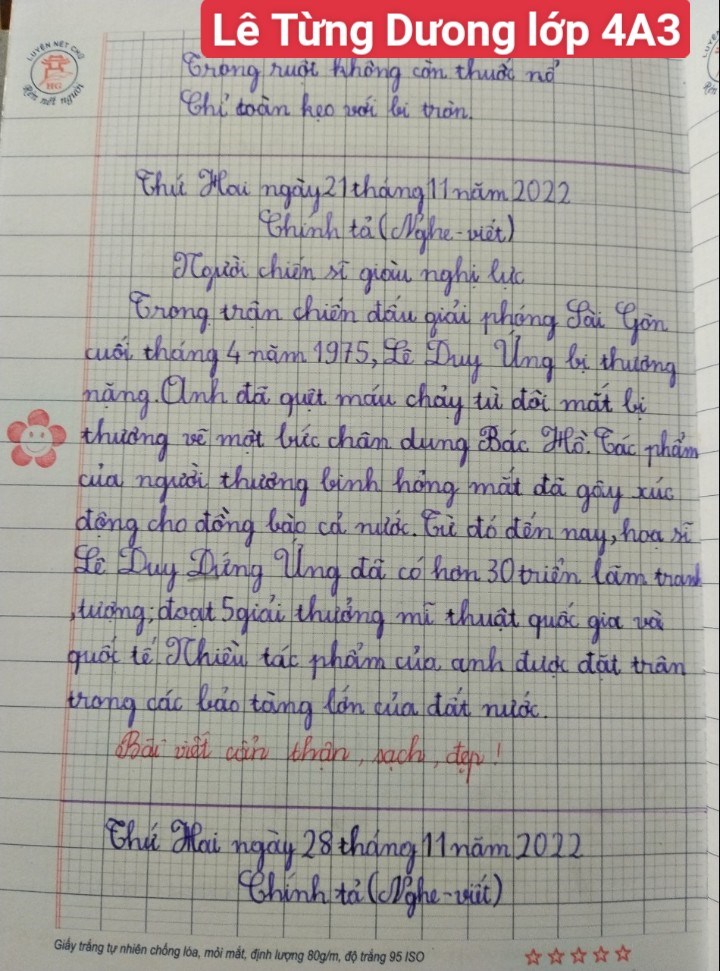 Lê Từng Dương lớp 4A3
LUYỆN NÉT CHỮ
HG
Rèn nết người
Trong ruột không còn thuốc nổ
Chỉ toàn kẹo với bi tròn.
Thứ Hai ngày 21 tháng 11 năm 2022
Chính tả (Nghe-viết)
Người chiến sĩ giàu nghị lực
Trong trận chiến đấu giải phóng Sài Gòn
cuối tháng 4 năm 1975, Lê Duy Ứng bị thương
nặng. Anh đã quệt máu chảy từ đôi mắt bị
thương vẽ một bức chân dung Bác Hồ. Tác phẩm
của người thương binh hỏng mắt đã gây xúc
động cho đồng bào cả nước. Từ đó đến nay, hoạ sĩ
Lê Duy Dứng Ứng đã có hơn 30 triển lãm tranh
, tượng; đoạt 5 giải thưởng mĩ thuật quốc gia và
quốc tế. Nhiều tác phẩm của anh được đặt trân
trong các bảo tàng lớn của đất nước.
Bài viết cẩn thận, sạch, đẹp!
Thứ Hai ngày 28 tháng 11 năm 2022
Chính tả (Nghe-viết)
Giấy trắng tự nhiên chống lóa, mỏi mắt, định lượng 80g/m, độ trắng 95 ISO